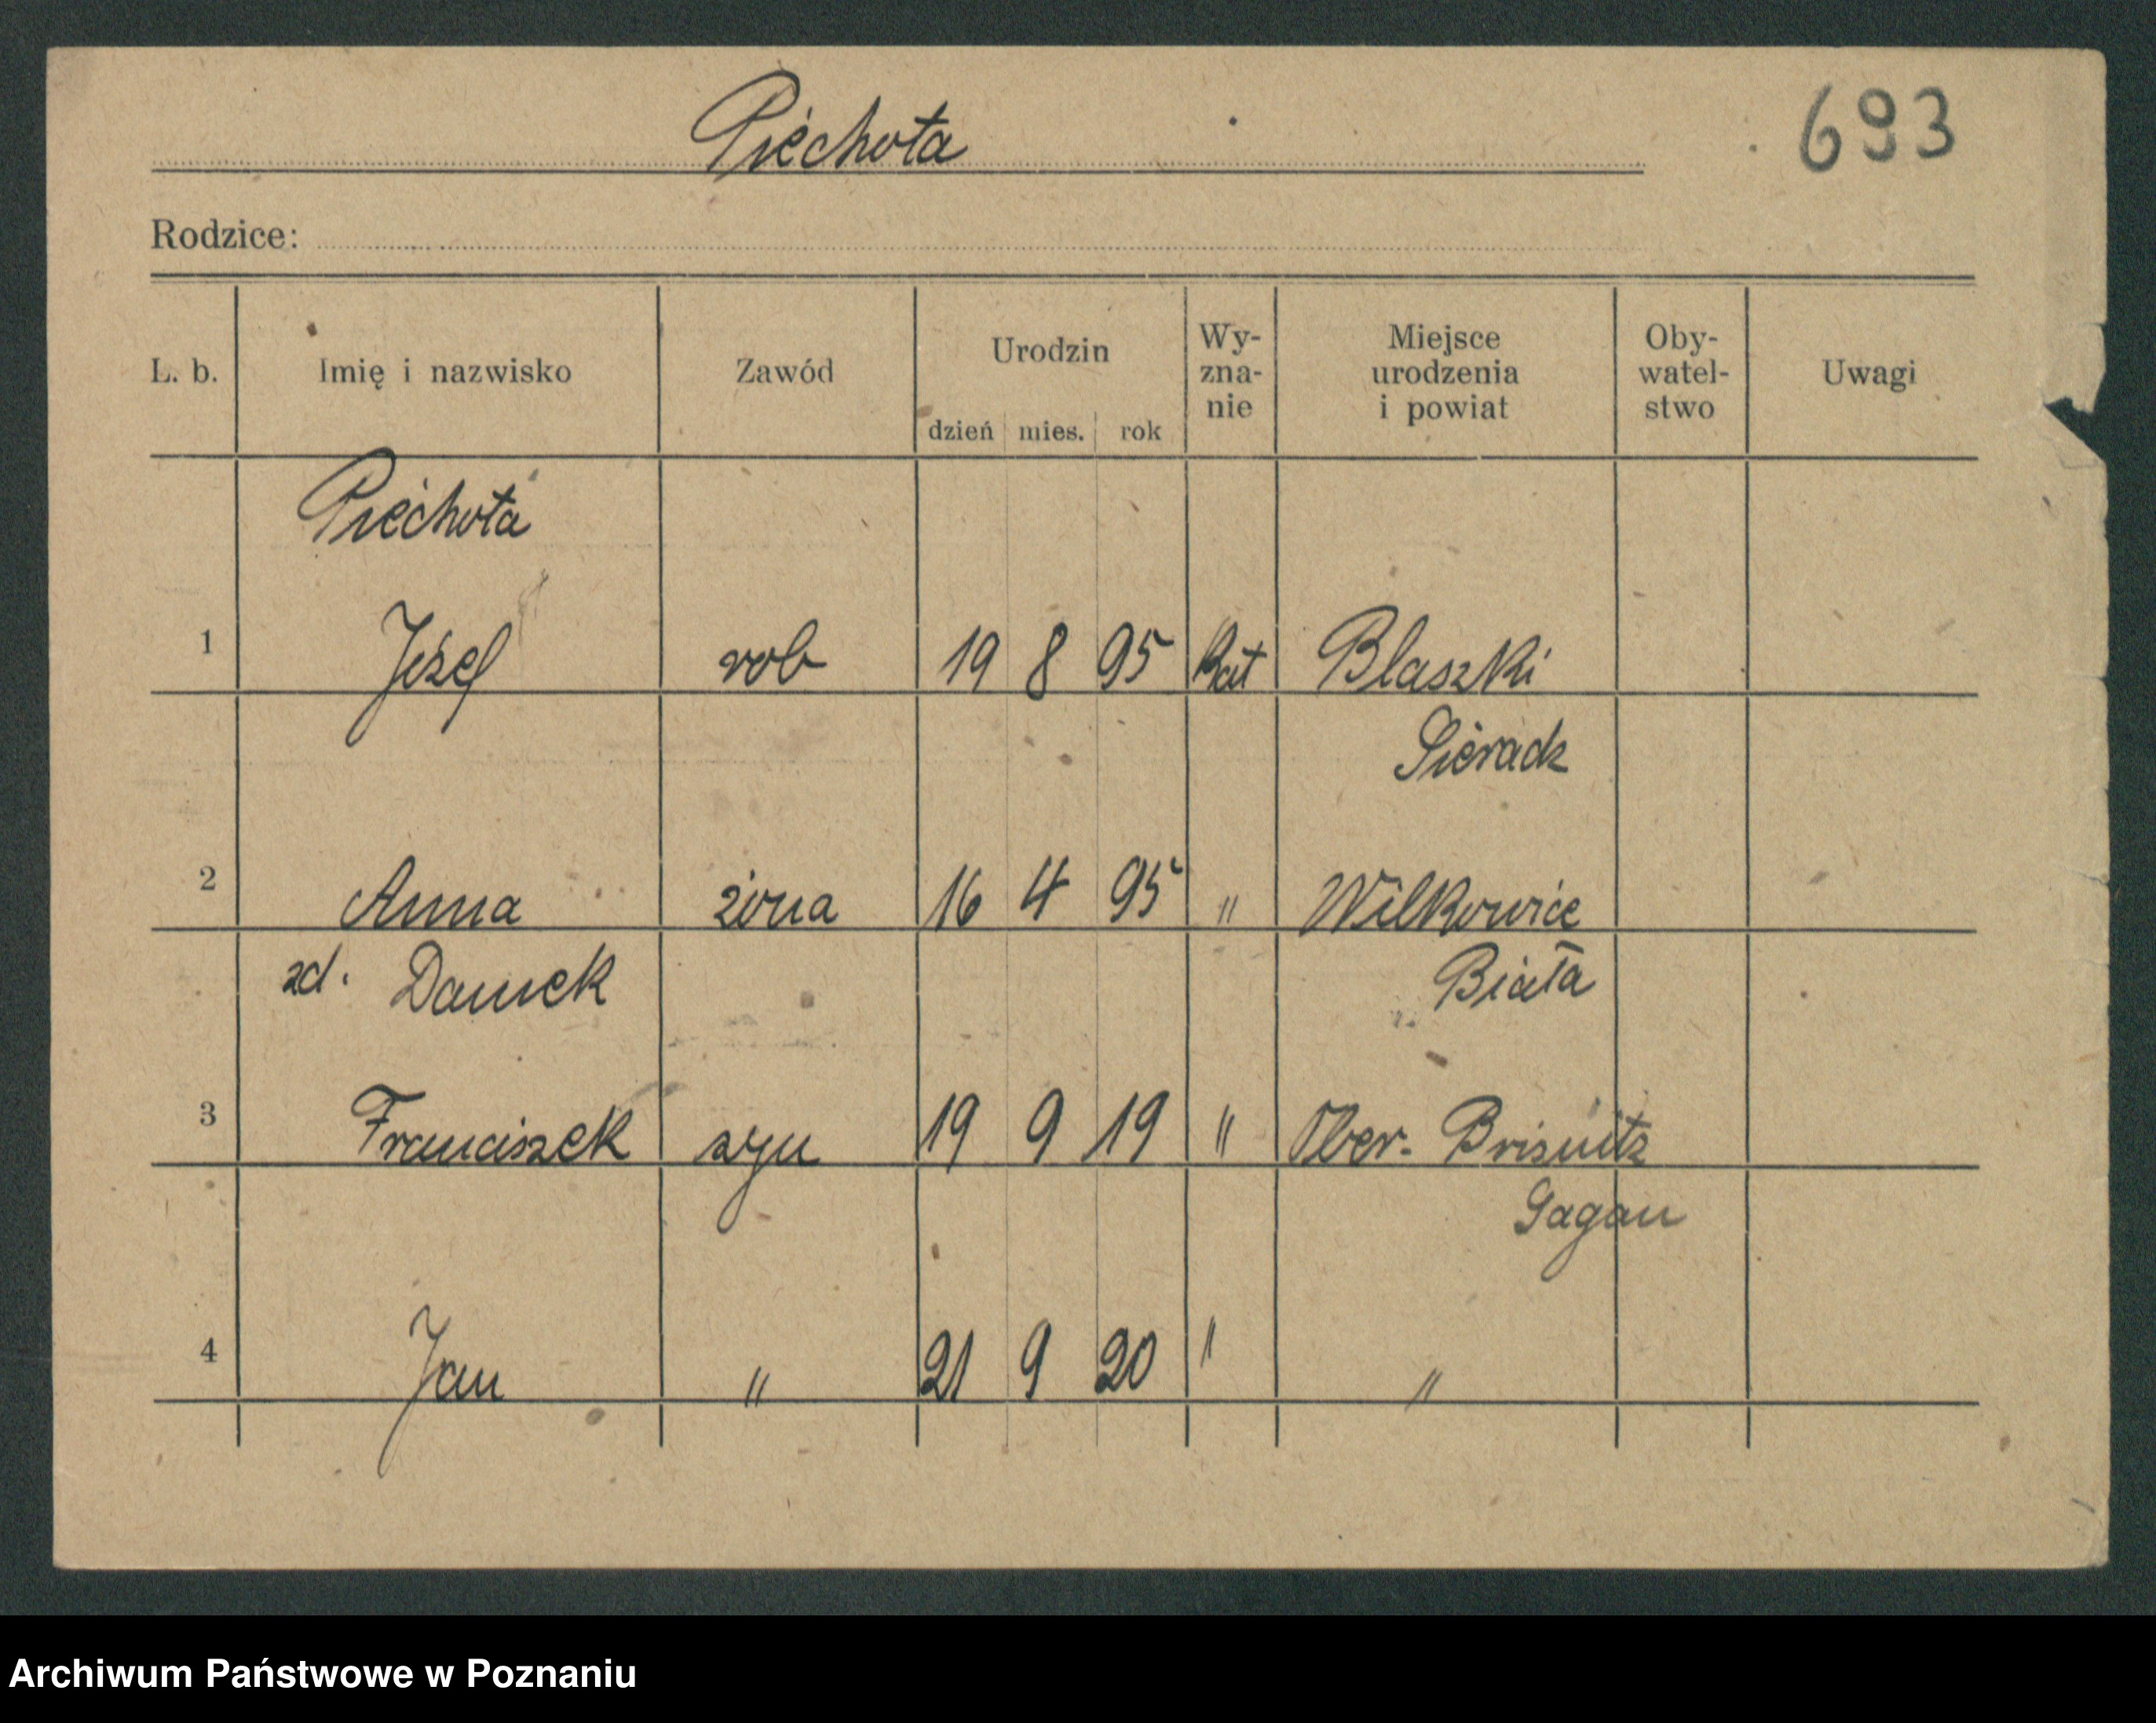 Piechota
693
Rodzice:
L. b. Imię i nazwisko Zawód Urodzin dzień mies. rok Wy-zna-nie Miejsce urodzenia i powiat Oby-watel-stwo Uwagi
Piechota
1 Józef rob 19 8 95 Kat Blaszki
Sieradz
2 Anna żona 16 4 95 " Wilkowice
zd. Damek Biała
3 Franciszek syn 19 9 19 " Ober-Brisnitz
Sagan
4 Jan " 21 9 20 " "
Archiwum Państwowe w Poznaniu